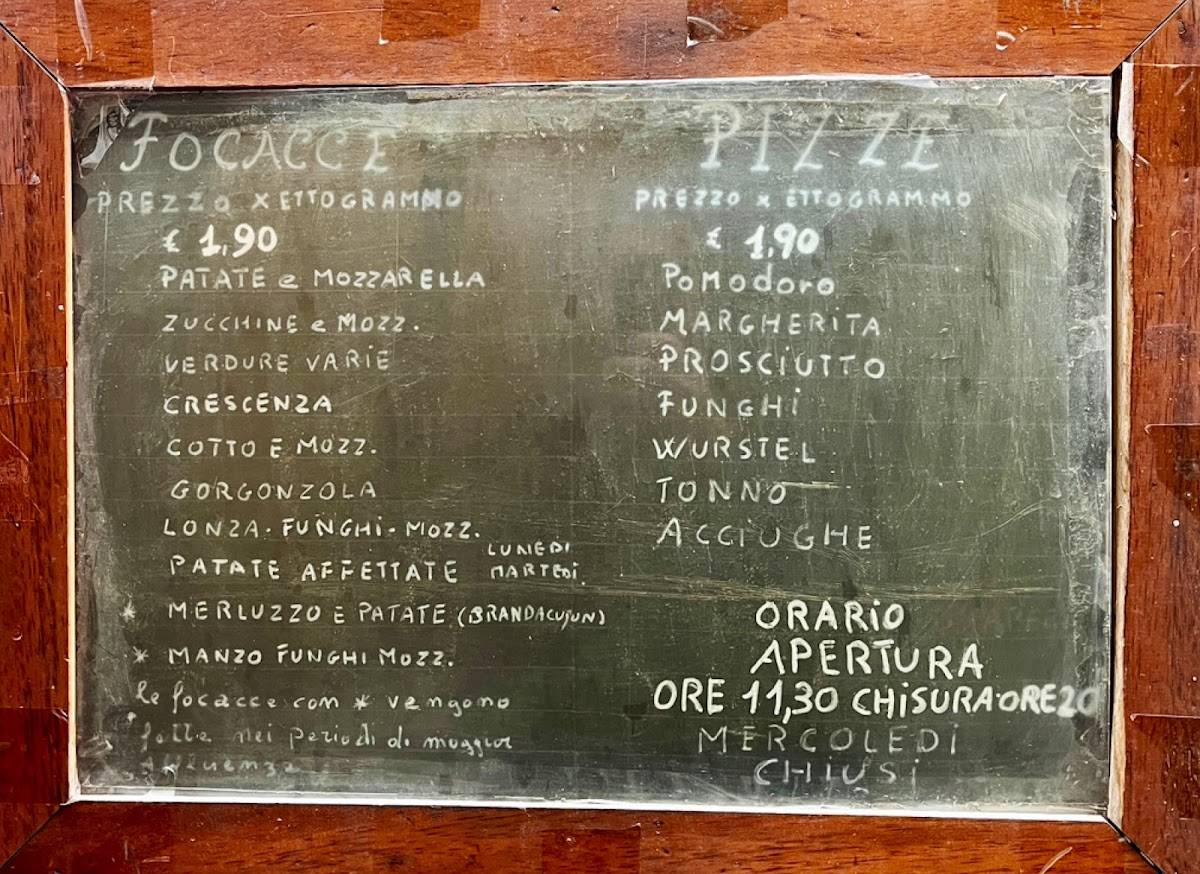 FOCACCE
PREZZO X ETTOGRAMMO
€ 1,90
PATATE e MOZZARELLA
ZUCCHINE e MOZZ.
VERDURE VARIE
CRESCENZA
COTTO E MOZZ.
GORGONZOLA
LONZA - FUNGHI - MOZZ.
PATATE AFFETTATE LUNEDI MARTEDI.
* MERLUZZO E PATATE (BRANDACUJUN)
* MANZO FUNGHI MOZZ.
le focacce con * vengono
fatte nei periodi di maggior
affluenza
PIZZE
PREZZO x ETTOGRAMMO
€ 1,90
POMODORO
MARGHERITA
PROSCIUTTO
FUNGHI
WURSTEL
TONNO
ACCIUGHE
ORARIO
APERTURA
ORE 11,30 CHISURA·ORE 20
MERCOLEDI
CHIUSI